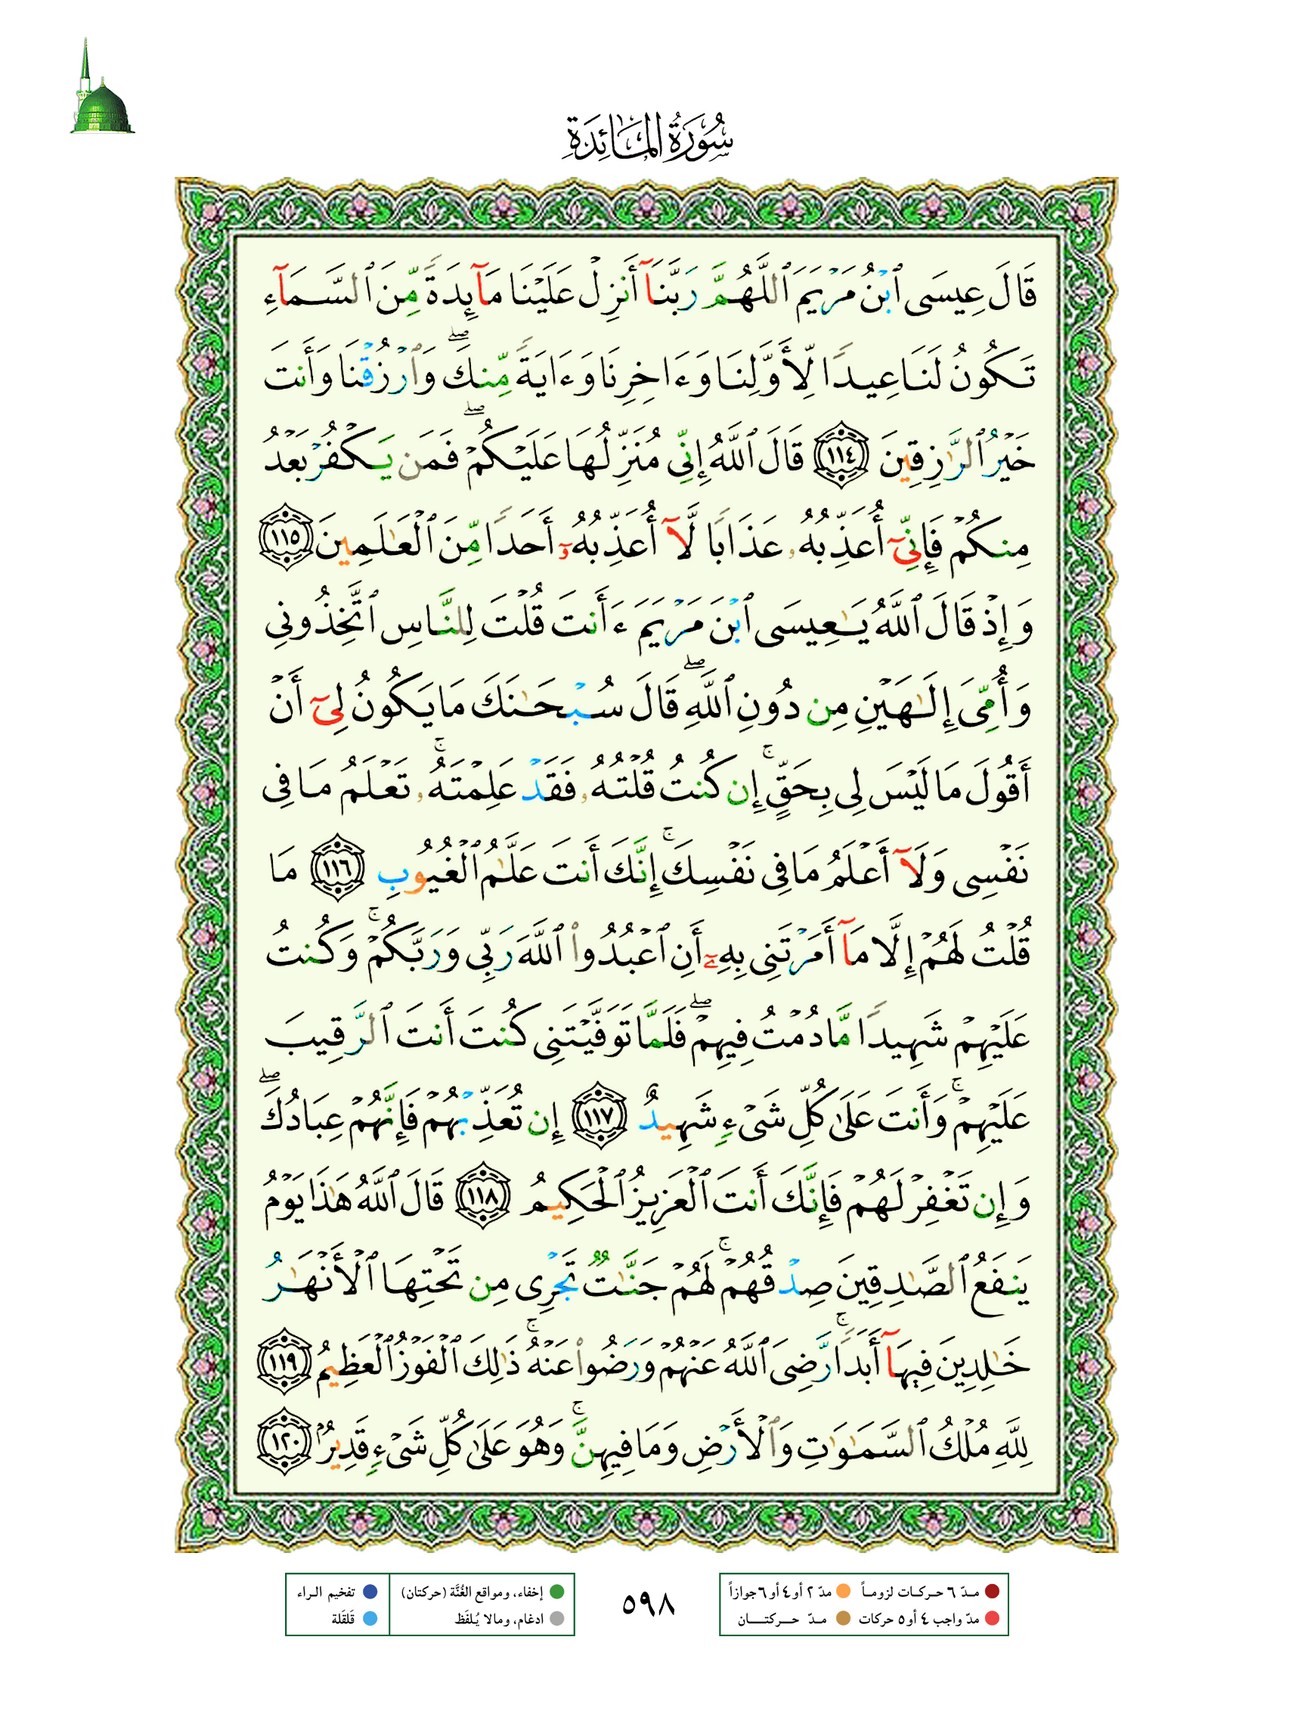 سُورَةُ المَائِدَةِ
قَالَ عِيسَى ٱبْنُ مَرْيَمَ ٱللَّهُمَّ رَبَّنَآ أَنزِلْ عَلَيْنَا مَآئِدَةً مِّنَ ٱلسَّمَآءِ
تَكُونُ لَنَا عِيدًا لِّأَوَّلِنَا وَءَاخِرِنَا وَءَايَةً مِّنكَ ۖ وَٱرْزُقْنَا وَأَنتَ
خَيْرُ ٱلرَّٰزِقِينَ ١١٤ قَالَ ٱللَّهُ إِنِّى مُنَزِّلُهَا عَلَيْكُمْ ۖ فَمَن يَكْفُرْ بَعْدُ
مِنكُمْ فَإِنِّىٓ أُعَذِّبُهُۥ عَذَابًا لَّآ أُعَذِّبُهُۥٓ أَحَدًا مِّنَ ٱلْعَٰلَمِينَ ١١٥
وَإِذْ قَالَ ٱللَّهُ يَٰعِيسَى ٱبْنَ مَرْيَمَ ءَأَنتَ قُلْتَ لِلنَّاسِ ٱتَّخِذُونِى
وَأُمِّىَ إِلَٰهَيْنِ مِن دُونِ ٱللَّهِ ۖ قَالَ سُبْحَٰنَكَ مَا يَكُونُ لِىٓ أَنْ
أَقُولَ مَا لَيْسَ لِى بِحَقٍّ ۚ إِن كُنتُ قُلْتُهُۥ فَقَدْ عَلِمْتَهُۥ ۚ تَعْلَمُ مَا فِى
نَفْسِى وَلَآ أَعْلَمُ مَا فِى نَفْسِكَ ۚ إِنَّكَ أَنتَ عَلَّٰمُ ٱلْغُيُوبِ ١١٦ مَا
قُلْتُ لَهُمْ إِلَّا مَآ أَمَرْتَنِى بِهِۦٓ أَنِ ٱعْبُدُوا۟ ٱللَّهَ رَبِّى وَرَبَّكُمْ ۚ وَكُنتُ
عَلَيْهِمْ شَهِيدًا مَّا دُمْتُ فِيهِمْ ۖ فَلَمَّا تَوَفَّيْتَنِى كُنتَ أَنتَ ٱلرَّقِيبَ
عَلَيْهِمْ ۚ وَأَنتَ عَلَىٰ كُلِّ شَىْءٍ شَهِيدٌ ١١٧ إِن تُعَذِّبْهُمْ فَإِنَّهُمْ عِبَادُكَ ۖ
وَإِن تَغْفِرْ لَهُمْ فَإِنَّكَ أَنتَ ٱلْعَزِيزُ ٱلْحَكِيمُ ١١٨ قَالَ ٱللَّهُ هَٰذَا يَوْمُ
يَنفَعُ ٱلصَّٰدِقِينَ صِدْقُهُمْ ۚ لَهُمْ جَنَّٰتٌ تَجْرِى مِن تَحْتِهَا ٱلْأَنْهَٰرُ
خَٰلِدِينَ فِيهَآ أَبَدًا ۚ رَّضِىَ ٱللَّهُ عَنْهُمْ وَرَضُوا۟ عَنْهُ ۚ ذَٰلِكَ ٱلْفَوْزُ ٱلْعَظِيمُ ١١٩
لِلَّهِ مُلْكُ ٱلسَّمَٰوَٰتِ وَٱلْأَرْضِ وَمَا فِيهِنَّ ۚ وَهُوَ عَلَىٰ كُلِّ شَىْءٍ قَدِيرٌۢ ١٢٠
مدّ ٦ حركات لزوماً مدّ ٢ أو ٤ أو ٦ جوازاً
مدّ واجب ٤ أو ٥ حركات مدّ حركتان
٥٩٨
إخفاء، ومواقع الغُنَّة (حركتان) تفخيم الراء
ادغام، ومالا يُلفَظ قَلقَلة